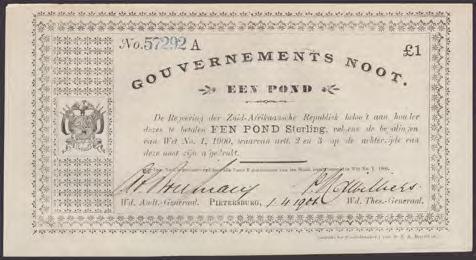 No. 57292 A
£1
GOUVERNEMENTS NOOT.
EEN POND
De Regeering der Zuid-Afrikaansche Republiek belooft aan houder
dezes te betalen EEN POND Sterling, volgens de bepalingen
van Wet No. 1, 1900, waarvan artt. 2 en 3 op de achterzijde van
deze noot zijn afgedrukt.
Wd. Audt.-Generaal. PIETERSBURG, 1.4.1901 Wd. Thes.-Generaal.